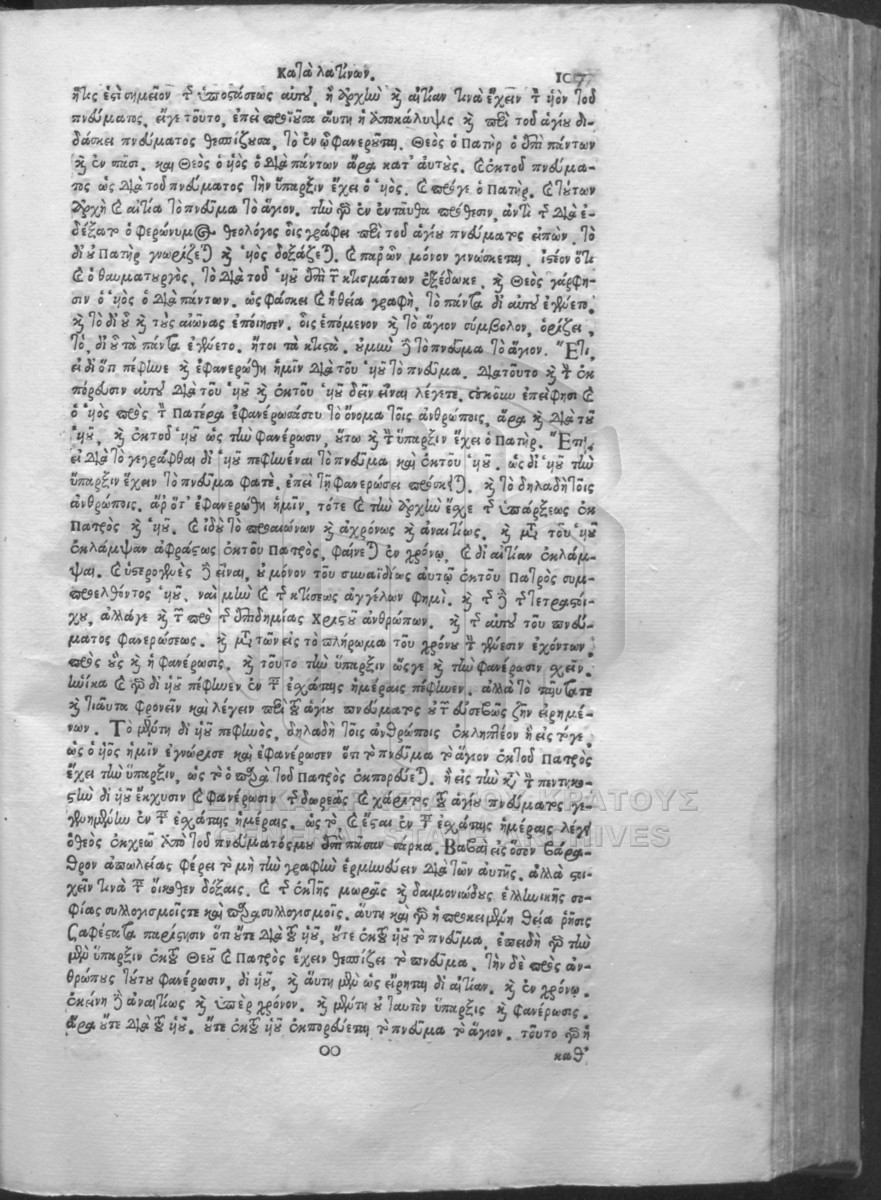 Κατὰ λατίνων. 107
ἥτις ἐστὶ σημεῖον τῆς ὑποστάσεως αὐτοῦ, ἢ ἀρχὴν καὶ αἰτίαν τινὰ ἔχειν τὸν υἱὸν τοῦ
πνεύματος, εἴγε τοῦτο, ἐπεὶ προϊοῦσα αὕτη ἡ ἀποκάλυψις καὶ περὶ τοῦ ἁγίου δι-
δάσκει πνεύματος θεσπίζουσα, τὸ ἐν ᾧ φανεροῦται. Θεὸς ὁ Πατὴρ ὁ ἐπὶ πάντων
καὶ ἐν πᾶσι. καὶ Θεὸς ὁ υἱὸς ὁ διὰ πάντων ἄρα κατ' αὐτούς. καὶ ἐκ τοῦ πνεύμα-
τος ὡς διὰ τοῦ πνεύματος τὴν ὕπαρξιν ἔχει ὁ υἱός. καὶ πρός γε ὁ Πατήρ. καὶ τούτων
ἀρχὴ καὶ αἰτία τὸ πνεῦμα τὸ ἅγιον. τὴν γὰρ ἐν ἐνταῦθα πρόθεσιν, ἀντὶ τῆς διὰ ἐ-
δέξατο ὁ φερώνυμος θεολόγος οἷς γράφει περὶ τοῦ ἁγίου πνεύματος εἰπών. τὸ
δι οὗ Πατὴρ γνωρίζεται καὶ υἱὸς δοξάζεται. καὶ παρ' ὧν μόνον γινώσκεται. ἰστέον ὅτι
καὶ ὁ θαυματουργὸς, τὸ διὰ τοῦ υἱοῦ ἐπὶ τῶν κτισμάτων ἐξέδωκε. καὶ Θεὸς γάρ φη-
σιν ὁ υἱὸς ὁ διὰ πάντων. ὡς φάσκει καὶ ἡ θεία γραφὴ, τὸ πάντα δι αὐτοῦ ἐγένετο.
καὶ τὸ δι οὗ καὶ τοὺς αἰῶνας ἐποίησεν. οἷς ἑπόμενον καὶ τὸ ἅγιον σύμβολον, ὁρίζει,
τὸ, δι οὗ τὰ πάντα ἐγένετο. ἤτοι τὰ κτιστά. οὐ μὴν δὲ τὸ πνεῦμα τὸ ἅγιον. Ἔτι,
εἰ διότι πέφηνε καὶ ἐφανερώθη ἡμῖν διὰ τοῦ υἱοῦ τὸ πνεῦμα. διατοῦτο καὶ τὴν ἐκ
πόρευσιν αὐτοῦ διὰ τοῦ υἱοῦ καὶ ἐκ τοῦ υἱοῦ δεῖν εἶναι λέγετε, οὐκοῦν ἐπεί φησι καὶ
ὁ υἱὸς πρὸς τὸν Πατέρα ἐφανέρωσά σου τὸ ὄνομα τοῖς ἀνθρώποις, ἄρα καὶ διὰ τοῦ
υἱοῦ, καὶ ἐκ τοῦ υἱοῦ ὡς τὴν φανέρωσιν, οὕτω καὶ τὴν ὕπαρξιν ἔχει ὁ Πατήρ. Ἔτι,
εἰ διὰ τὸ γεγράφθαι δι υἱοῦ πεφηνέναι τὸ πνεῦμα καὶ ἐκ τοῦ υἱοῦ. ὡς δι υἱοῦ τὴν
ὕπαρξιν ἔχειν τὸ πνεῦμα φατὲ. ἐπεὶ τῇ φανερώσει πρόσκειται. καὶ τὸ δηλαδὴ τοῖς
ἀνθρώποις. ἆρ' ὅτ' ἐφανερώθη ἡμῖν, τότε καὶ τὴν ἀρχὴν ἔσχε τῆς ὑπάρξεως ἐκ
Πατρὸς καὶ υἱοῦ. καὶ ἰδοὺ τὸ προαιώνων καὶ ἀχρόνως καὶ ἀναιτίως. καὶ μετὰ τοῦ υἱοῦ
ἐκλάμψαν ἀφράστως ἐκ τοῦ Πατρὸς, φαίνεται ἐν χρόνῳ. καὶ δι αἰτίαν ἐκλάμ-
ψαι. καὶ ὑστερογενὲς δὲ εἶναι, οὐ μόνον τοῦ συναϊδίως αὐτῷ ἐκ τοῦ Πατρὸς συμ-
προελθόντος υἱοῦ. ναὶ μὴν καὶ τῆς κτίσεως ἀγγέλων φημί. καὶ τῆς δὲ τῆς τετραστοί-
χου, ἀλλά γε καὶ τῶν πρὸ τῆς ἐπιδημίας Χριστοῦ ἀνθρώπων. καὶ τῆς αὐτοῦ τοῦ πνεύ-
ματος φανερώσεως. καὶ μετὰ τῶν εἰς τὸ πλήρωμα τοῦ χρόνου τὴν γένεσιν ἐχόντων.
πρὸς οὓς καὶ ἡ φανέρωσις. καὶ τοῦτο τὴν ὕπαρξιν ὥς γε καὶ τὴν φανέρωσιν σχεῖν.
ἡνίκα καὶ γὰρ δι υἱοῦ πέφηνεν ἐν ταῖς ἐσχάταις ἡμέραις πέφηνεν. ἀλλὰ τὸ ταῦτά τε
καὶ τοιαῦτα φρονεῖν καὶ λέγειν περὶ τοῦ ἁγίου πνεύματος οὐ τῶν εὐσεβῶς ζῆν εἰρημέ-
νων. Τὸ μέντοι δι υἱοῦ πεφηνὸς, δηλαδὴ τοῖς ἀνθρώποις ἐκληπτέον ἢ εἰς τό γε,
ὡς ὁ υἱὸς ἡμῖν ἐγνώρισε καὶ ἐφανέρωσεν ὅτι τὸ πνεῦμα τὸ ἅγιον ἐκ τοῦ Πατρὸς
ἔχει τὴν ὕπαρξιν, ὡς τὸ ὃ παρὰ τοῦ Πατρὸς ἐκπορεύεται. ἢ εἰς τὴν κατὰ τὴν πεντηκο-
στὴν δι υἱοῦ ἔκχυσιν καὶ φανέρωσιν τῆς δωρεᾶς καὶ χάριτος τοῦ ἁγίου πνεύματος γε-
γενημένην ἐν ταῖς ἐσχάταις ἡμέραις. ὡς τὸ, καὶ ἔσται ἐν ταῖς ἐσχάταις ἡμέραις λέγει
ὁ θεὸς ἐκχεῶ ἀπὸ τοῦ πνεύματός μου ἐπὶ πᾶσαν σάρκα. Βαβαὶ εἰς ὅσον βάρα-
θρον ἀπωλείας φέρει τὸ μὴ τὴν γραφὴν ἑρμηνεύειν διὰ τῶν αὐτῆς. ἀλλὰ στοι-
χεῖν τινὰ ταῖς οἴκοθεν δόξαις. καὶ τῆς ἐκ τῆς μωρᾶς καὶ δαιμονιώδους ἑλληνικῆς σο-
φίας συλλογισμοῖς τε καὶ παρασυλλογισμοῖς. αὕτη καὶ γὰρ ἡ προκειμένη θεία ῥῆσις
σαφέστατα παρίστησιν ὅτι οὔτε διὰ τοῦ υἱοῦ, οὔτε ἐκ τοῦ υἱοῦ τὸ πνεῦμα. ἐπειδὴ γὰρ τὴν
μὲν ὕπαρξιν ἐκ τοῦ Θεοῦ καὶ Πατρὸς ἔχειν θεσπίζει τὸ πνεῦμα. τὴν δὲ πρὸς ἀν-
θρώπους τούτου φανέρωσιν, δι υἱοῦ, καὶ αὕτη μὲν ὡς εἴρηται δι αἰτίαν. καὶ ἐν χρόνῳ.
ἐκείνη δὲ ἀναιτίως καὶ ὑπὲρ χρόνον. καὶ μέντοι οὐ ταυτὸν ὕπαρξις καὶ φανέρωσις.
ἄρα οὔτε διὰ τοῦ υἱοῦ. οὔτε ἐκ τοῦ υἱοῦ ἐκπορεύεται τὸ πνεῦμα τὸ ἅγιον. τοῦτο γὰρ ἡ
οο καθ'
ΓΕΝΙΚΑ ΑΡΧΕΙΑ ΤΟΥ ΚΡΑΤΟΥΣ
GENERAL STATE ARCHIVES